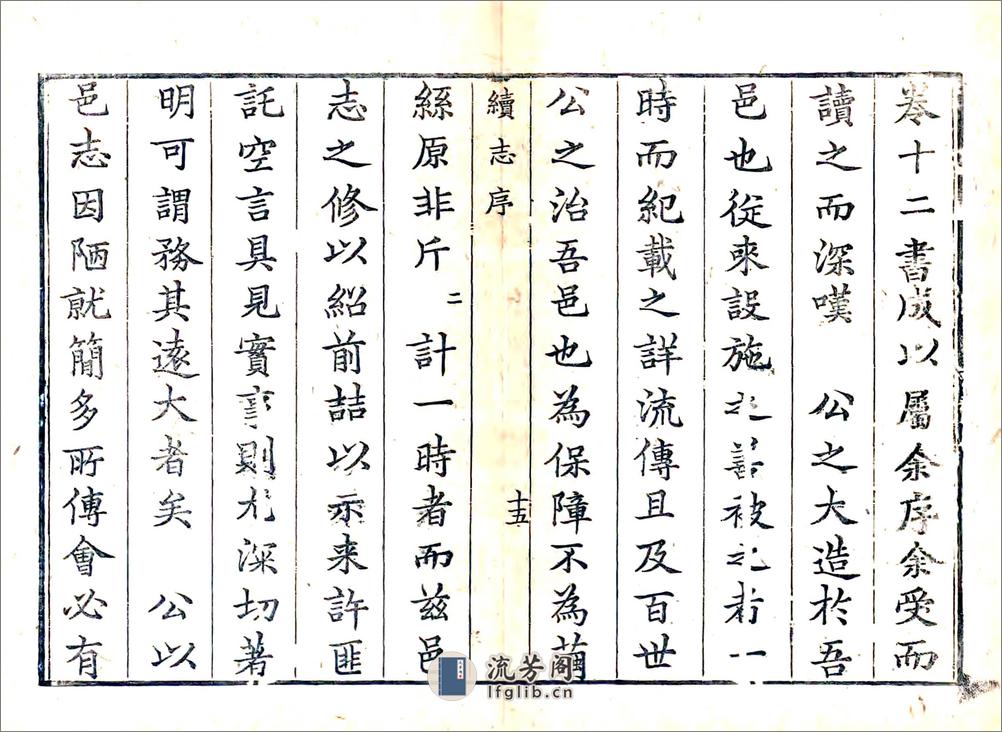 卷十二書成以屬余序余受而
讀之而深嘆 公之大造於吾
邑也從來設施之善被之者一
時而紀載之詳流傳且及百世
公之治吾邑也為保障不為繭
續志序 十五
絲原非斤二計一時者而茲邑
志之修以紹前喆以示来許匪
託空言具見實事則尤深切著
明可謂務其遠大者矣 公以
邑志因陋就簡多所傳會必有
流芳閣
lfglib.cn